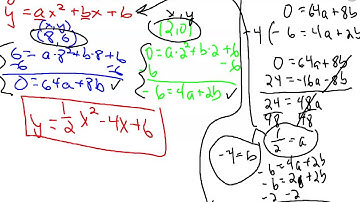 y = ax² + bx + 6
(x,y)
(8,6)
6 = a·8² + b·8 + 6
-6 -6
0 = 64a + 8b ✓
x, y
(2,0)
0 = a·2² + b·2 + 6
-6 -6
-6 = 4a + 2b ✓
y = 1/2 x² - 4x + 6
0 = 64a + 8b
-4(-6 = 4a + 2b
0 = 64a + 8b
24 = -16a - 8b
24 = 48a
48 48
1/2 = a
-4 = b
-6 = 4a + 2b
-6 = 2 + 2b
-2 -2